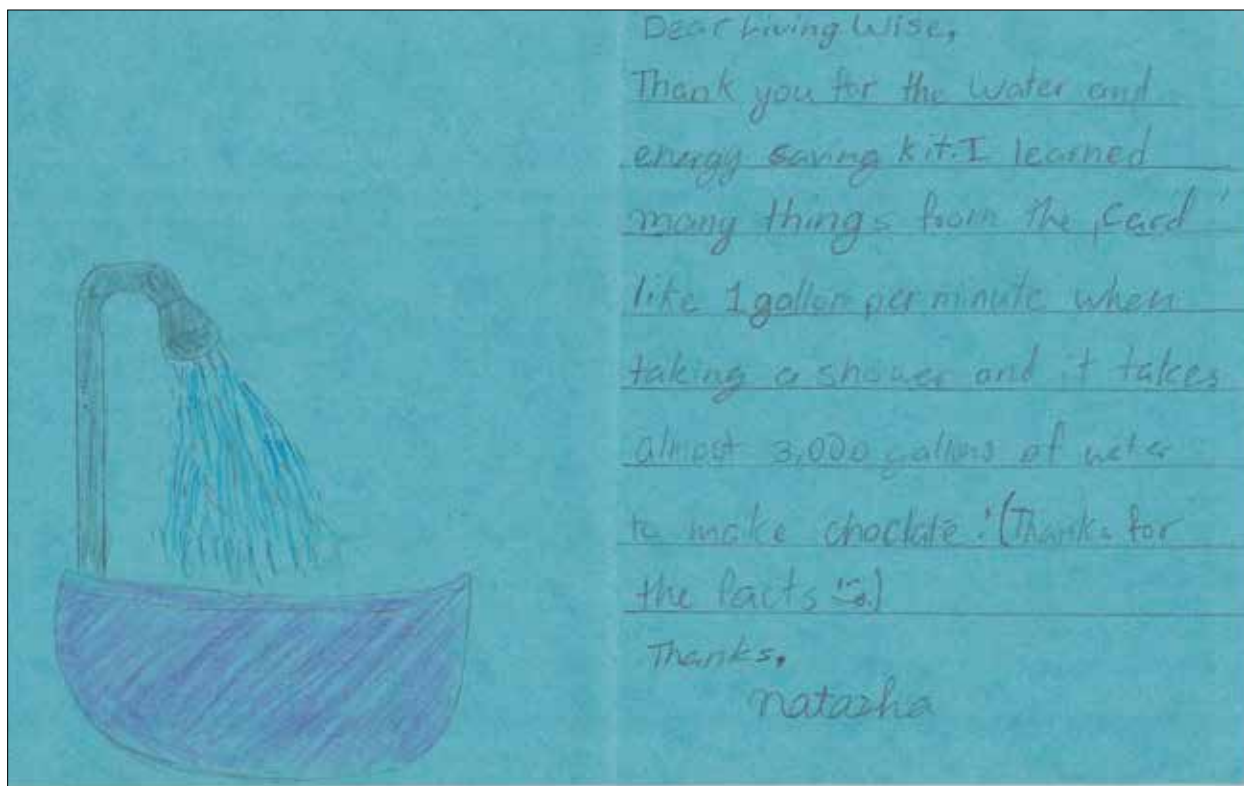 Dear Living Wise,
Thank you for the water and
energy saving kit. I learned
many things from the "card"
like 1 gallon per minute when
taking a shower and it takes
almost 3,000 gallons of water
to make choclate! (Thanks for
the facts :).)
Thanks,
natasha